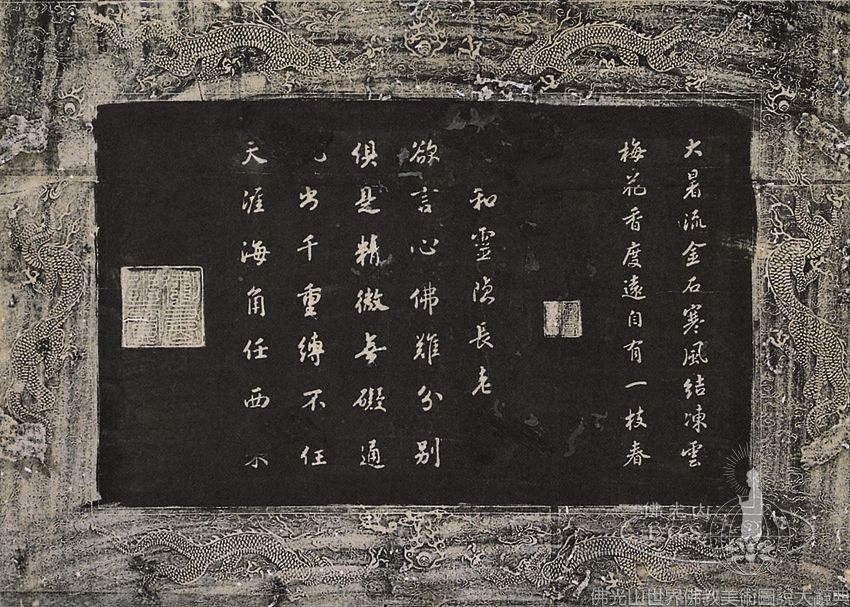 大暑流金石寒風結凍雲
梅花香度遠自有一枝春
和靈隱長老
欲言心佛難分別
俱是精微無礙通
出千重縛不住
天涯海角任西
佛光山世界佛教美術圖說大辭典